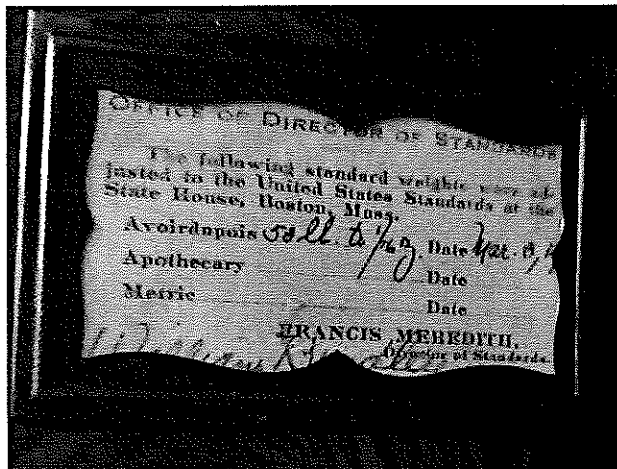 OFFICE OF DIRECTOR OF STANDARDS
The following standard weights were ad-
justed to the United States Standards at the
State House, Boston, Mass.
Avoirdupois 50 lb. to 1/16 oz. Date Mar. 3,
Apothecary Date
Metric Date
FRANCIS MEREDITH,
Director of Standards